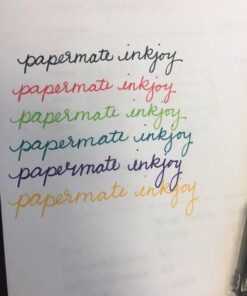 papermate inkjoy
papermate inkjoy
papermate inkjoy
papermate inkjoy
papermate inkjoy
papermate inkjoy